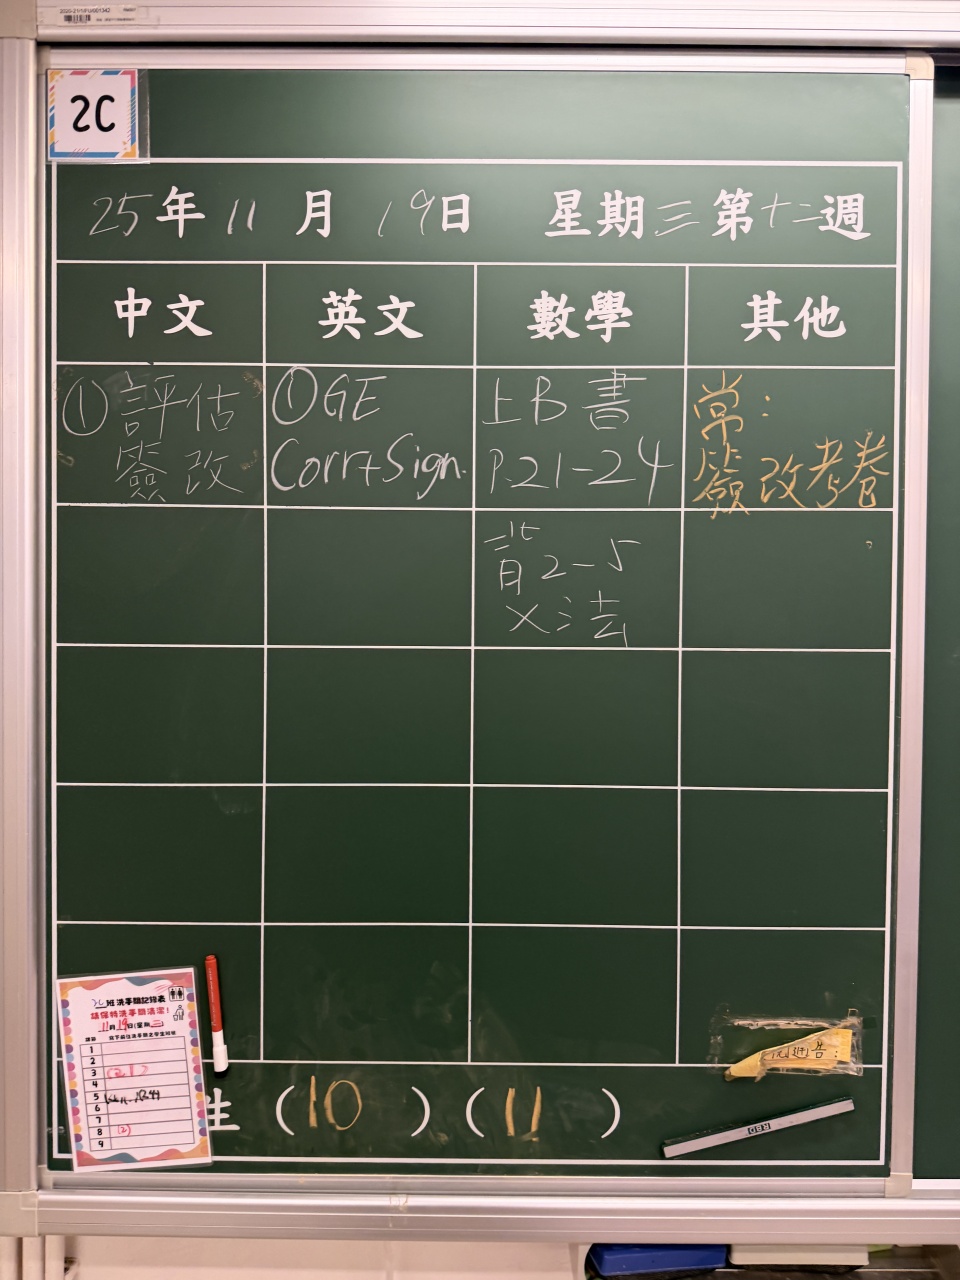 2C
25年11月19日 星期三第十二週
中文 英文 數學 其他
①評估
簽改
①GE
Corr+Sign.
上B書
P.21-24
常:
簽改考卷
背2-5
乂法
2C班洗手間記錄表
請保持洗手間清潔!
11月19日(星期三)
1
2
3
4
5
6
7
8 (2)
9
生 (10) (11)
通告: